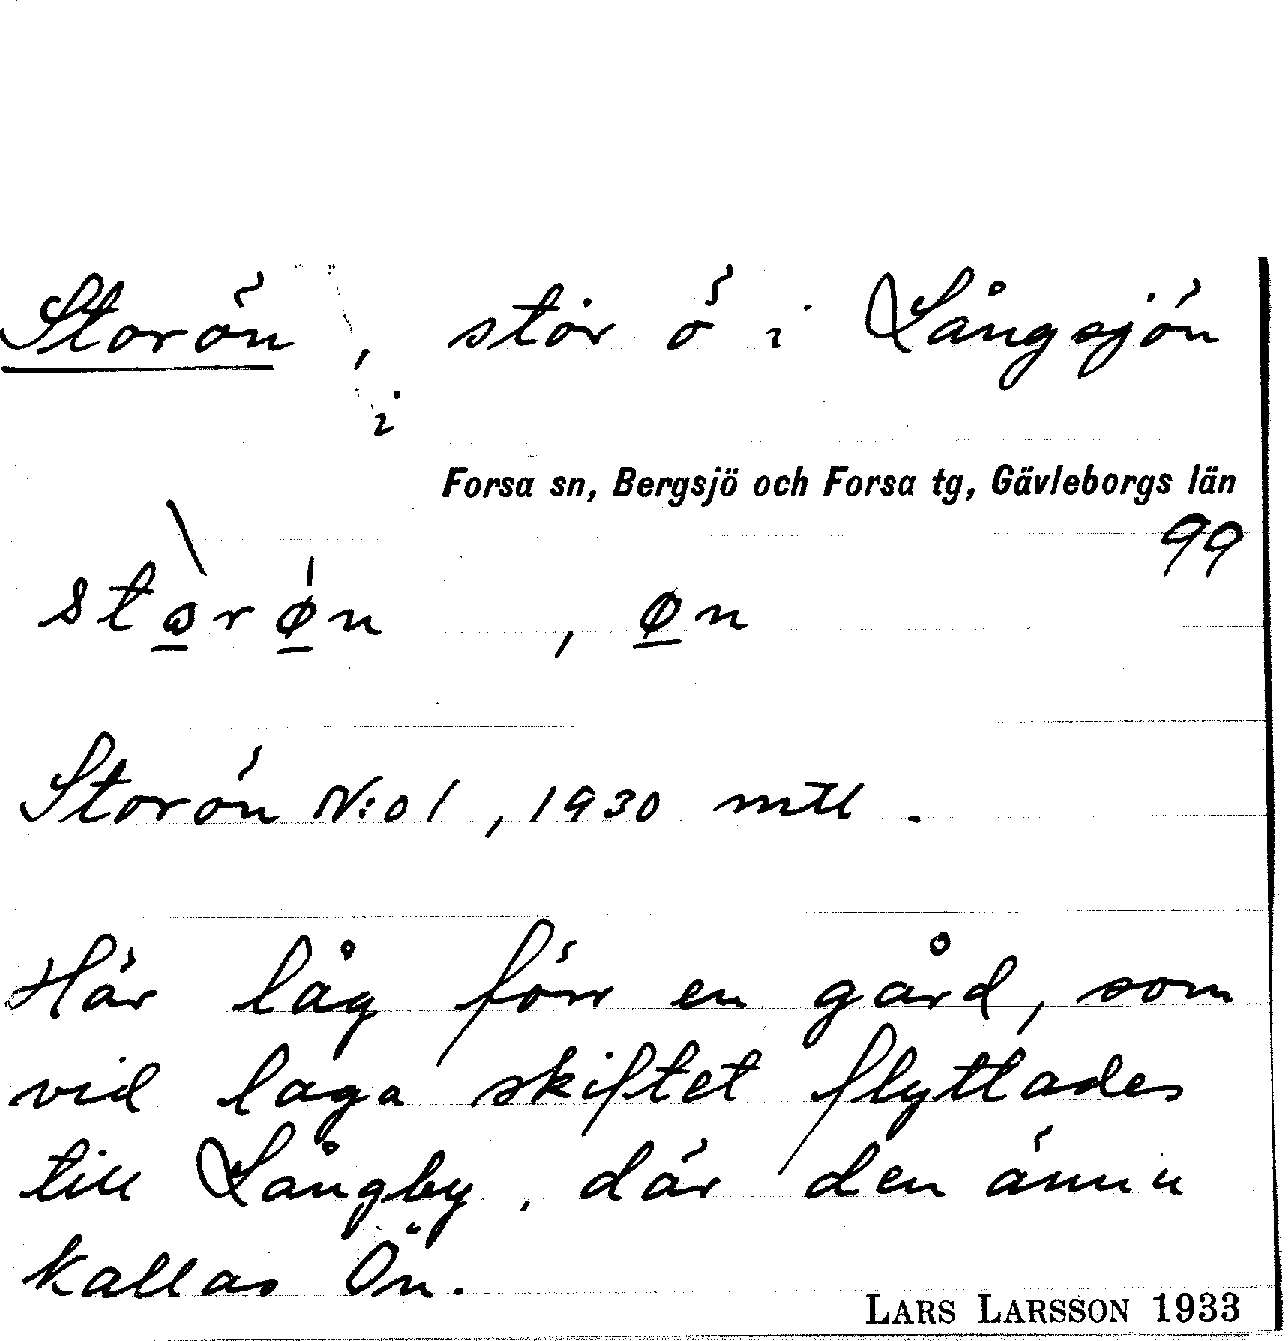 Storön, stor ö i Långsjön
i
Forsa sn, Bergsjö och Forsa tg, Gävleborgs län
99
, øn
Storön N:o 1, 1930 mtl.
Här låg förr en gård, som
vid laga skiftet flyttades
till Långby, där den ännu
kallas Ön.
LARS LARSSON 1933